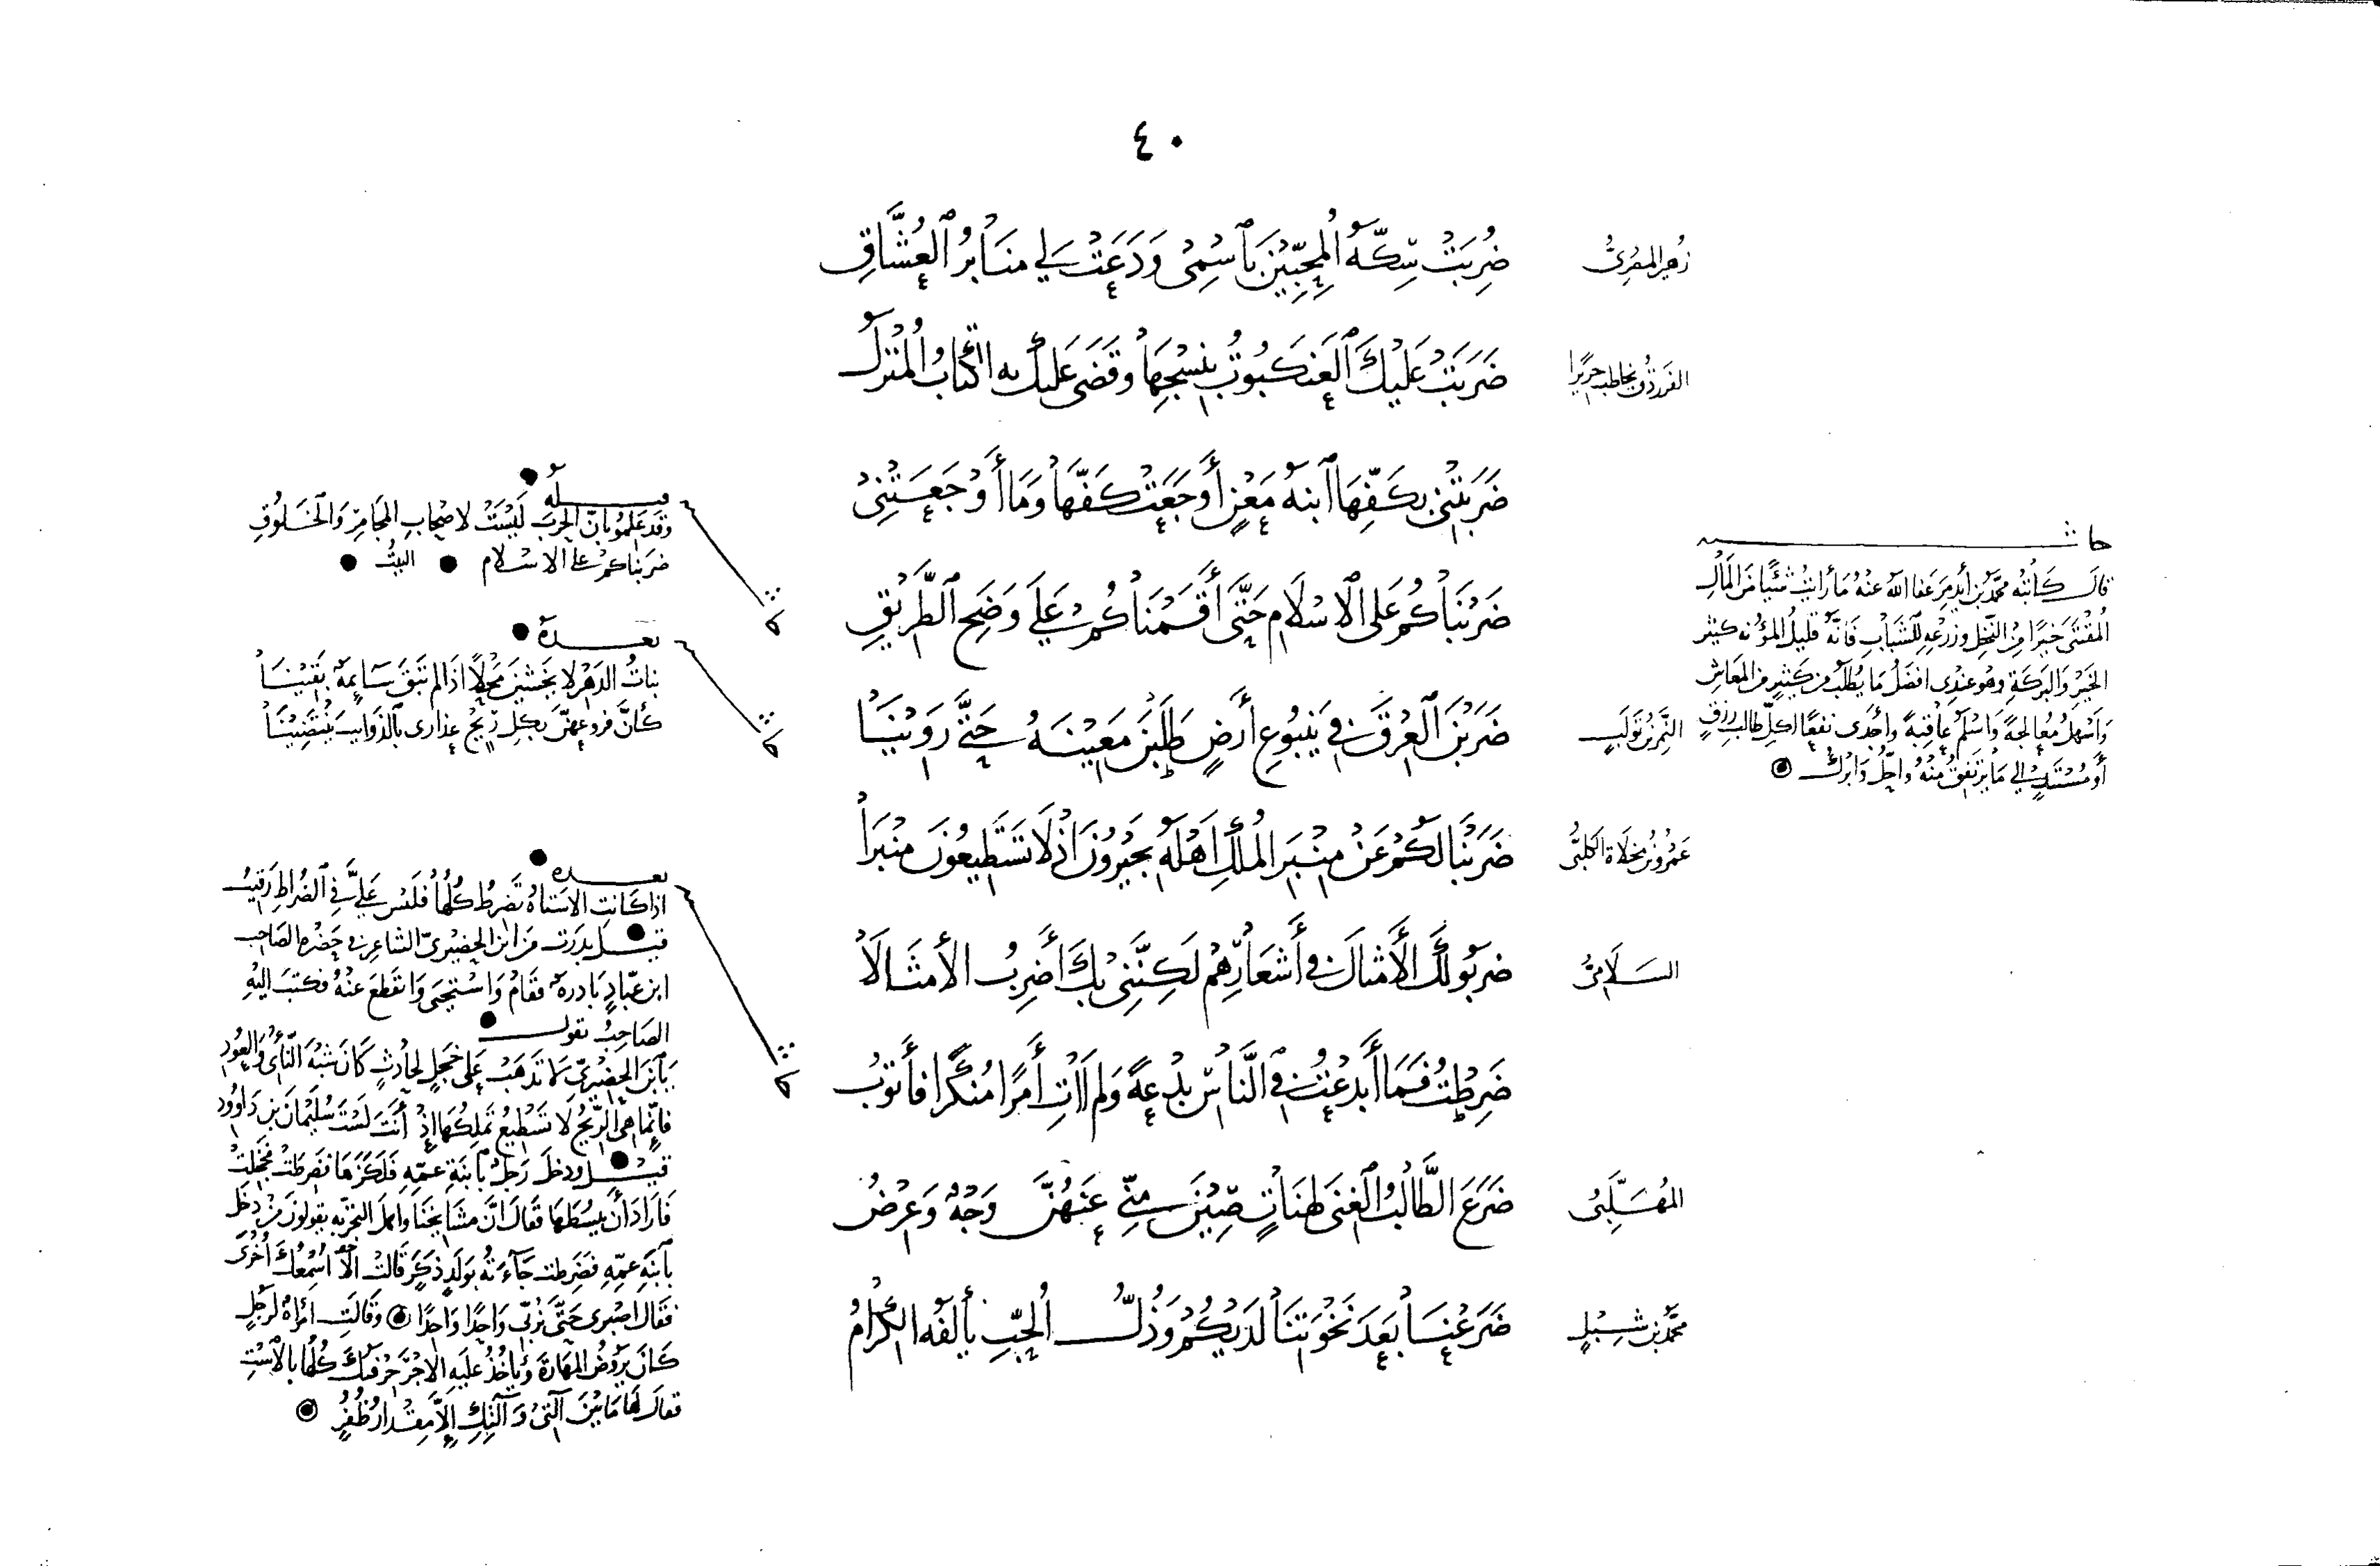 ٤٠
زهير المصري
ضُرِبَتْ سِكَّةُ الْمُحِبِّيْنَ بِاسْمِىْ وَدَعَتْ لِي مَنَابِرُ الْعُشَّاقِ
الفرزدق يخاطب جريرًا
ضَرَبَتْ عَلَيْكَ الْعَنْكَبُوتُ بِنَسْجِهَا وَقَضَى عَلَيْكَ بِهِ الْكِتَابُ الْمُنْزَلُ
ضَرَبَتْنِى بِكَفِّهَا ابْنَةُ مَعْنٍ أَوْجَعَتْ كَفَّهَا وَمَا أَوْجَعَتْنِىْ
ضَرَبْنَاكُمْ عَلَى الْاسْلَامِ حَتَّى أَقَمْنَاكُمْ عَلَى وَضَحِ الطَّرِيْقِ
النَّمِرُ بْنُ تَوْلَبٍ
ضَرَبْنَ الْعُرْقَ فِي يَنْبُوعِ أَرْضٍ طَلَبْنَ مَعِيْنَهُ حَتَّى رَوَيْنَا
عَمْرُو بْنُ مِخْلَاةَ الكلبىّ
ضَرَبْنَا لَكُمْ عَنْ مِنْبَرِ الْمُلْكِ اَهْلَهُ بِجَيْرُونَ اذْ لَا تَسْتَطِيعُونَ مِنْبَرَا
السَّلَامىّ
ضربُو لَكَ الْأَمْثَالَ فِي أَشْعَارِهِمْ لَكِنَّنِىْ بِكَ أَضْرِبُ الأمثَالَا
ضَرِطْتُ فَمَا أَبْدَعْتُ فِي النَّاسِ بِدْعَةً وَلَم اٰتِ أَمْرًا مُنْكَرًا فَأَتُوْبُ
المُهَلَّبِىُّ
ضَرَعَ الطَّالِبُ الْغِنَى لِهَنَاتٍ صِيْنَ مِنِّي عَنْهُنَّ وَجْهٌ وَعِرْضُ
محمَّد بن شِبْلٍ
ضَرَعْنَا بَعْدَ نَخْوَتِنَا لَدَيْكُمْ وَذُلُّ الْحُبِّ يأْلَفُه الْكِرَامُ
حاشية
قال كاتبُه محمَّد بن أيدمر عَفا اللهُ عنهُ مَا رأيتُ شَيْئًا مِنَ الْمَالِ
الْمُقْتَنَى خَيْرًا مِنَ النَّخْلِ وزَرْعِهِ لِلشَّبَابِ فَانَّهُ قَليلُ المؤنه كثير
الخَيْرِ وَالبَرَكَةِ وهُو عندِى افضَلُ مَا يُطْلَبُ من كثيرٍ مِنَ المعَاشِ
وَأَسْهَلُ مُعالجةً وَاسْلَمُ عاقبةً وأَجْدَى نفعًا لكلِّ طالبِ رِزْقٍ
أَو مُسْتَنِدٍ إلى مَا يَرتَفِقُ مِنْهُ وَاجلُّ وَابْرَكُ
قبلَهُ
وَقَد عَلِمُوا بِانَّ الْحَرْبَ لَيْسَتْ لاصْحابِ المجَامِرِ وَالْخَلُوقِ
ضَرَبنَاكم على الاسلام البيتُ
بعدهُ
بناتُ الدَهْرِ لا يخشينَ مَحْلًا اذَا لم تَبْقَ سَائِمَةٌ بَقيْنَا
كَأَنَّ فروعهنَّ بكلِ رِيْحٍ عذارى بالذوائبِ يَنْتَضِيْنَا
بعده
اذا كَانتِ الاسْتاهُ تَضرطُ كلُّها فلَيْس عَليَّ فِي الضُراطِ رَقيبُ
قيل بدرَت من ابن الحضيرىّ الشاعر في حَضْرة الصَاحب
ابن عبَّادٍ بَادرة فقامَ وَاسْتَحيَى وَانقَطعَ عَنْهُ فكتبَ اليْهِ
الصَاحِبُ يقول
يَا ابْنَ الحضيْرِيّ لا تَذهَبْ عَلى خَجلٍ لحادثٍ كَانَ شبْهَ النَّأْىِ وَالعُوْدِ
فانّما هى الرِّيْحُ لَا تَسْطِيعُ تَملكُهَا إذْ أَنتَ لَسْتَ سُليْمانَ بن دَاوُودِ
قيْل ودخلَ رجلٌ بابنَةِ عمّهِ فلكزها فضَرطَتْ فخَجِلَتْ
فَارَادَ أنْ يبسُطَهَا فقَالَ انَّ مشَايخنَا وَاهلَ التجربه يقولون من دخلَ
بابنَةِ عمِّهِ فضَرطت جآءته بِوَلَدٍ ذكَرٍ قَالتْ الا اُسْمِعُكَ أُخْرَى
فقَال اصْبرى حَتّى نُرَبّى وَاحِدًا وَاحِدًا وَقَالتِ امرأةٌ لرَجُلٍ
كَانَ يَرُوضُ المِهَارَةَ وَيأخُذُ عليهِ الاجْرَ حِرْفتكَ كُلّهَا بالاسْتِ
فقَالَ لَهَا مَا بَيْنَ آلَتِىْ وَآلَتِكِ إِلَّا مِقْدارُ ظُفْرٍ